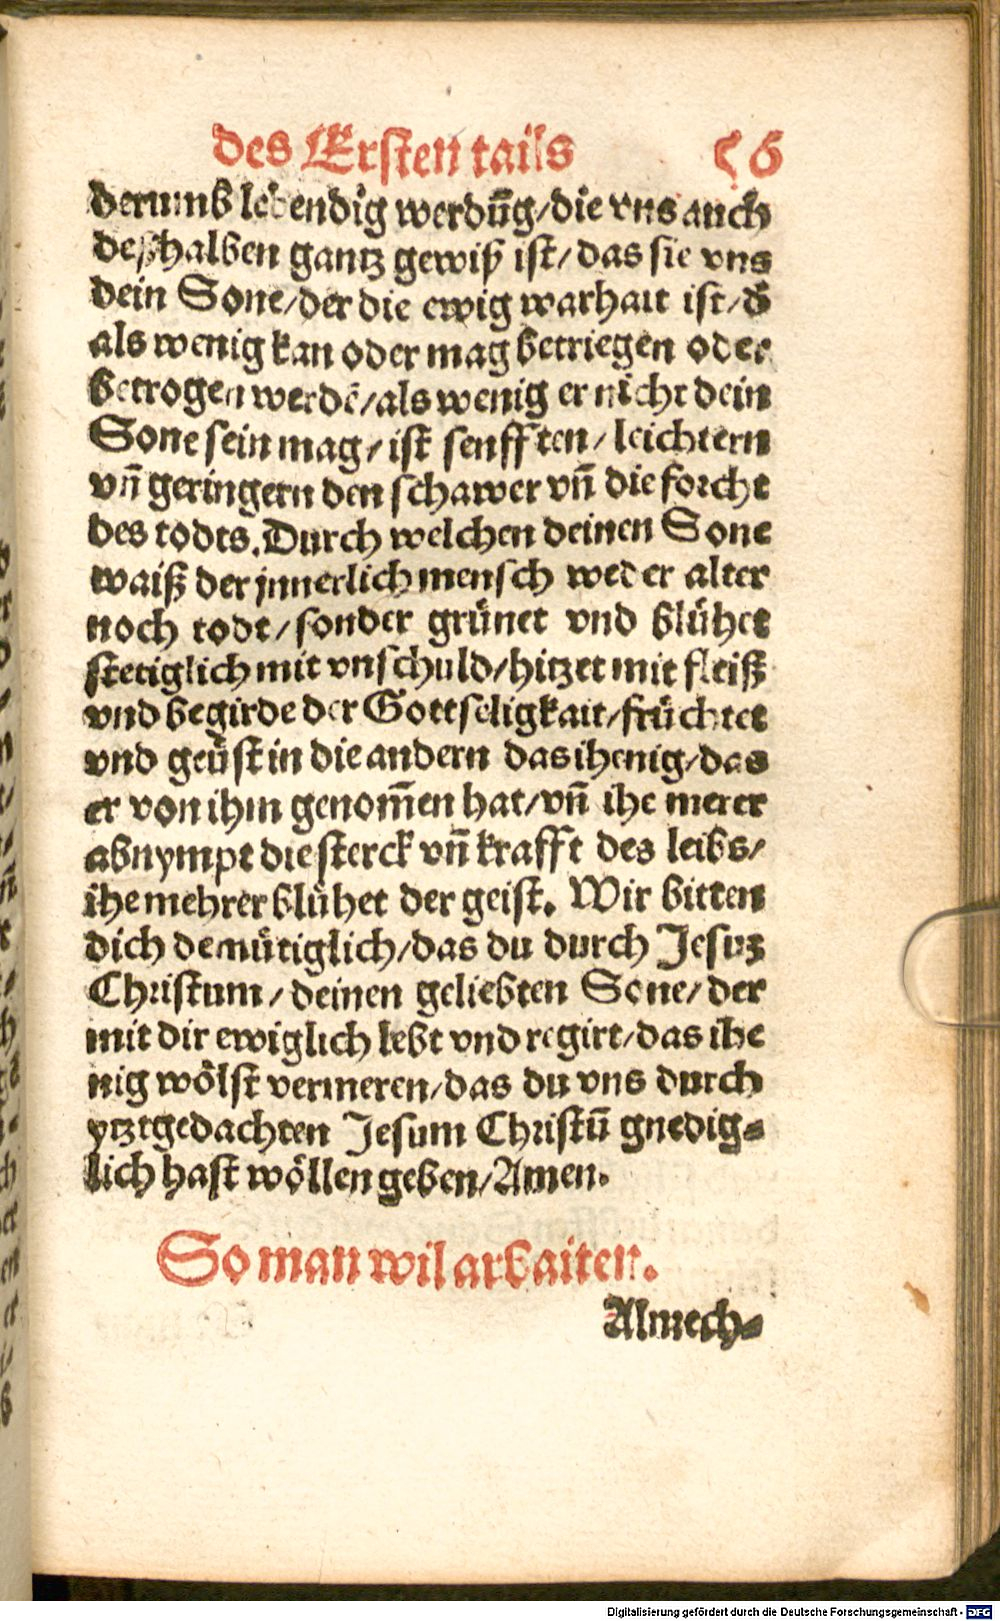 des Ersten tails 56
derumb lebendig werdūg/die vns auch
deßhalben gantz gewiß ist/das sie vns
dein Sone/der die ewig warhait ist/d̄
als wenig kan oder mag betriegen oder
betrogen werdē/als wenig er nicht dein
Sone sein mag/ist senfften/leichtern
vñ geringern den schawer vñ die forcht
des todts. Durch welchen deinen Sone
waiß der jnnerlich mensch weder alter
noch todt/sonder grünet vnd blühet
stetiglich mit vnschuld/hitzet mit fleiß
vnd begirde der Gottseligkait/früchtet
vnd geüst in die andern das ihenig/das
er von ihm genom̄en hat/vñ ihe merer
abnympt die sterck vñ krafft des leibs/
ihe mehrer blühet der geist. Wir bitten
dich demütiglich/das du durch Jesuz
Christum/deinen geliebten Sone/der
mit dir ewiglich lebt vnd regirt/das ihe
nig wölst vermeren/das du vns durch
ytztgedachten Jesum Christū gnedig-
lich hast wöllen geben/Amen.
So man wil arbaiten.
Almech-
Digitalisierung gefördert durch die Deutsche Forschungsgemeinschaft - DFG